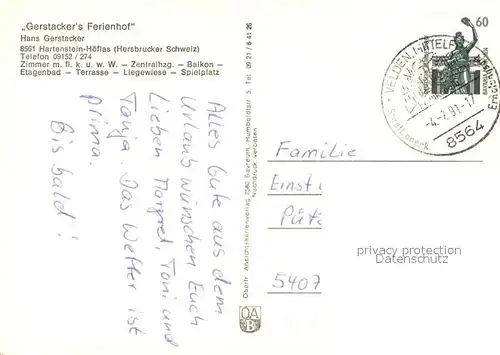 „Gerstacker's Ferienhof"
Hans Gerstacker
8561 Hartenstein-Höflas (Hersbrucker Schweiz)
Telefon 09152 / 274
Zimmer m. fl. k. u. w. W. – Zentralhzg. – Balkon –
Etagenbad – Terrasse – Liegewiese – Spielplatz
Alles Gute aus dem
Urlaub wünschen Euch
Lieben Margret, Toni und
Tanja. Das Wetter ist
prima.
Bis bald!
Oberfr. Ansichtskartenverlag 8580 Bayreuth, Humboldtstr. 3, Tel. 09 21 / 6 41 26
Nachdruck verboten
OA
B
60
VELDEN, MITTELFR
-4.-7.91-17
8564
Familie
Einst
Püt
5407
privacy protection
oldthing.com